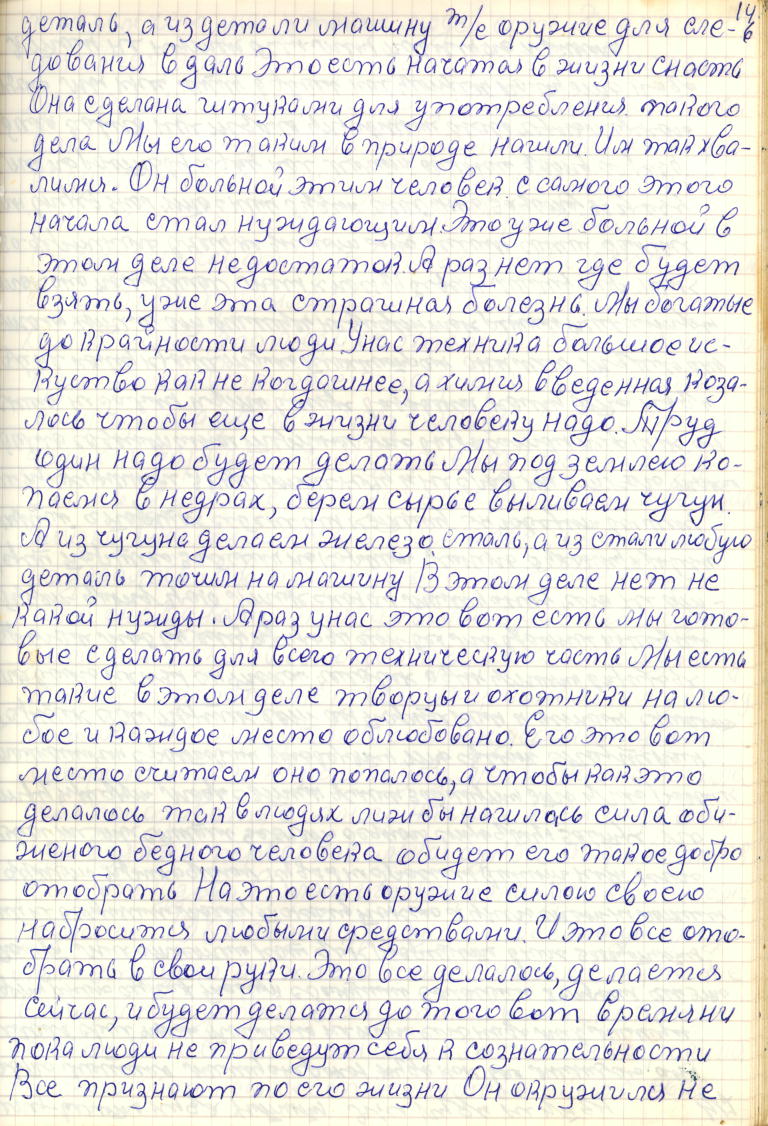 14
6
деталь, а из детали машину т/е оружие для сле-
дования в даль Это есть начатая в жизни снасть
Она сделана штуками для употребления такого
дела Мы его таким в природе нашли. Им так хва-
лимся. Он больной этим человек с самого этого
начала стал нуждающим Это уже больной в
этом деле недостаток. А раз нет где будет
взять, уже эта страшная болезнь. Мы богатые
до крайности люди У нас техника большое ис-
куство как не когдашнее, а химия введенная коза-
лось чтобы еще в жизни человеку надо. Труд
один надо будет делать Мы под землею ко-
паемся в недрах, берем сырье выливаем чугун.
А из чугуна делаем железо, сталь, а из стали любую
деталь точим на машину В этом деле нет не
какой нужды. А раз у нас это вот есть мы гото-
вые сделать для всего техническую часть Мы есть
такие в этом деле творцы и охотники на лю-
бое и каждое место облюбовано. Его это вот
место считаем оно попалось, а чтобы как это
делалось так в людях лиж бы нашлась сила оби-
женого бедного человека обидет его такое добро
отобрать На это есть оружие силою своею
набросится любыми средствами. И это все ото-
брать в свои руки. Это все делалось, делается
сейчас, и будет делатся до того вот времяни
пока люди не приведут себя к сознательности
Все признают по его жизни Он окружился не